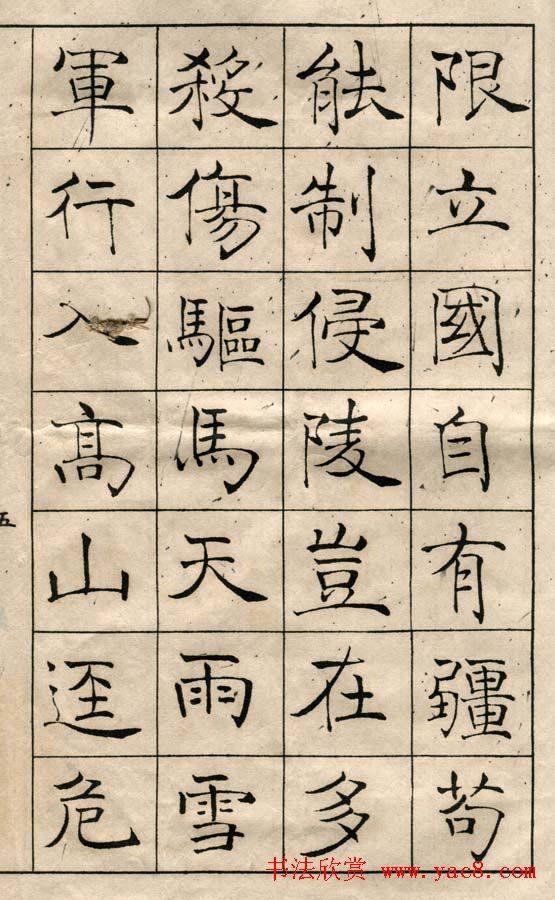 限立國自有疆苟
能制侵陵豈在多
殺傷驅馬天雨雪
軍行入高山迳危
五
书法欣赏 www.yac8.com